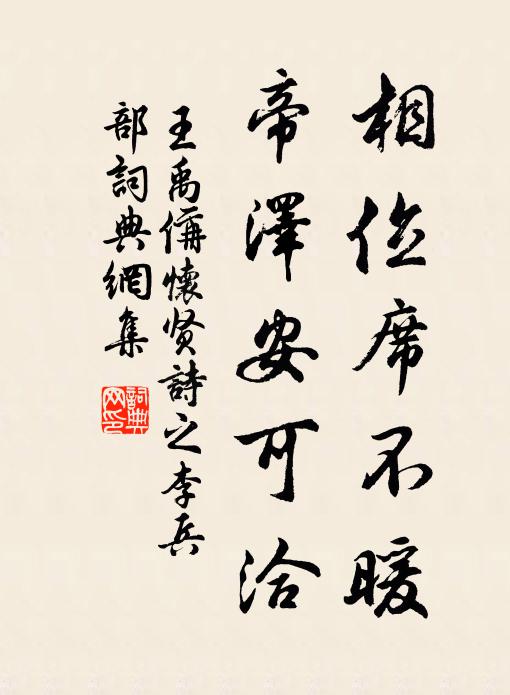 相位席不暖
帝澤安可洽
王禹偁懷贤詩之李兵
部詞典網集
詞典
网印